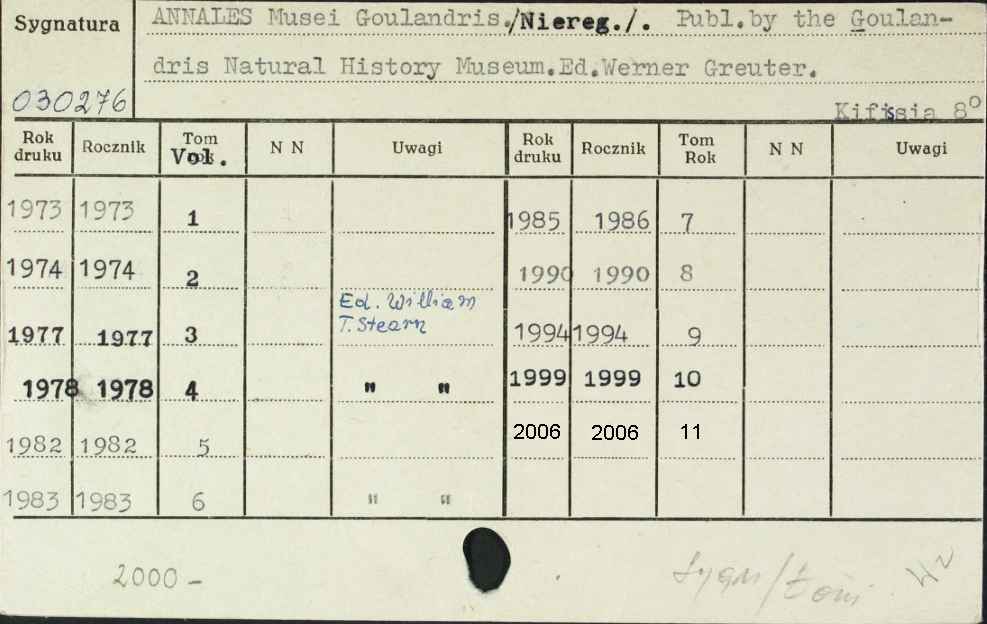 Sygnatura
ANNALES Musei Goulandris./Niereg./. Publ.by the Goulan-
dris Natural History Museum.Ed.Werner Greuter.
030276
Kifissia 8°
Rok druku Rocznik Tom Rok Vol. N N Uwagi Rok druku Rocznik Tom Rok N N Uwagi
1973 1973 1 1985 1986 7
1974 1974 2 1990 1990 8
Ed. William
T. Stearn
1977 1977 3 1994 1994 9
1978 1978 4 " " 1999 1999 10
1982 1982 5 2006 2006 11
1983 1983 6 " "
2000 -